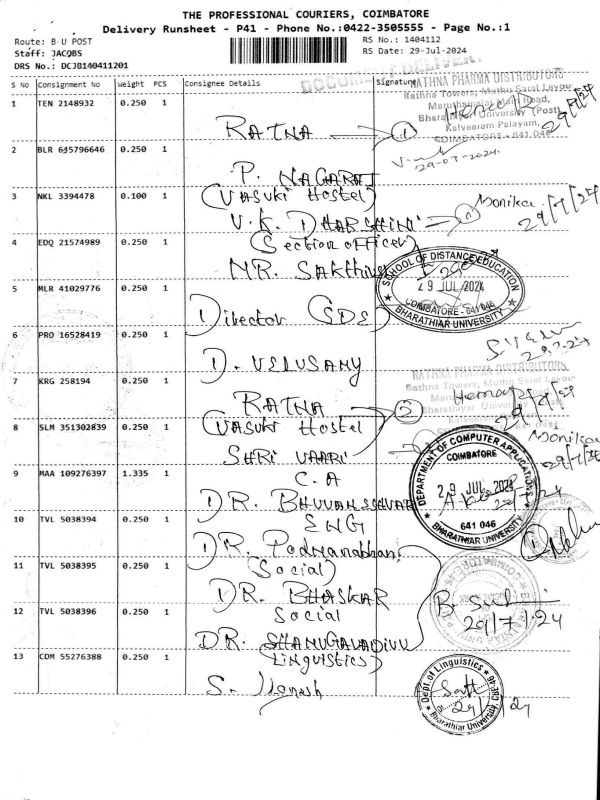 THE PROFESSIONAL COURIERS, COIMBATORE
Delivery Runsheet - P41 - Phone No.:0422-3505555 - Page No.:1
Route: B U POST
RS No.: 1404112
Staff: JACOBS
RS Date: 29-Jul-2024
DRS No.: DCJB140411201
S No Consignment No Weight PCS Consignee Details Signature
RATHNA PHARMA DISTRIBUTORS
Rathna Towers, Muthu Sarat Layout
Maruthamalai Main Road,
Bharathiar University (Post)
Kalveeram Palayam,
COIMBATORE - 641 046
1 TEN 2148932 0.250 1
RATNA 1 29/7/24
29-07-2024
2 BLR 615796646 0.250 1
P. NAGARAJ
3 NKL 3394478 0.100 1
(VASUKI Hostel)
V.K. DHARSHINI 1 Monika 29/7/24
4 EDQ 21574989 0.250 1
(Section officer)
MR. SAKTHIVEL
SCHOOL OF DISTANCE EDUCATION
29 JUL 2024
COIMBATORE - 641 046
BHARATHIAR UNIVERSITY
5 MLR 41029776 0.250 1
Director (SDE)
6 PRO 16528419 0.250 1
D. VELUSAMY 29.7.24
7 KRG 258194 0.250 1
RATNA 2 29/7/24
RATHNA PHARMA DISTRIBUTORS
Rathna Towers, Muthu Sarat Layout
Bharathiar University
8 SLM 351302839 0.250 1
(VASUKI Hostel
SHRI VAARI Monika 29/7/24
9 MAA 109276397 1.335 1
C.A
DR. BHUVANESHVARI
DEPARTMENT OF COMPUTER APPLICATIONS
COIMBATORE
29 JUL 2024
641 046
BHARATHIAR UNIVERSITY
10 TVL 5038394 0.250 1
ENG
DR. Padmanabhan
11 TVL 5038395 0.250 1
(Social)
DR. BHASKAR
12 TVL 5038396 0.250 1
Social
29/7/24
DR. SHANUGAVADIVU
13 CDM 55276388 0.250 1
(Linguistics)
S.
Dept of Linguistics
Bharathiar University, CBE-46